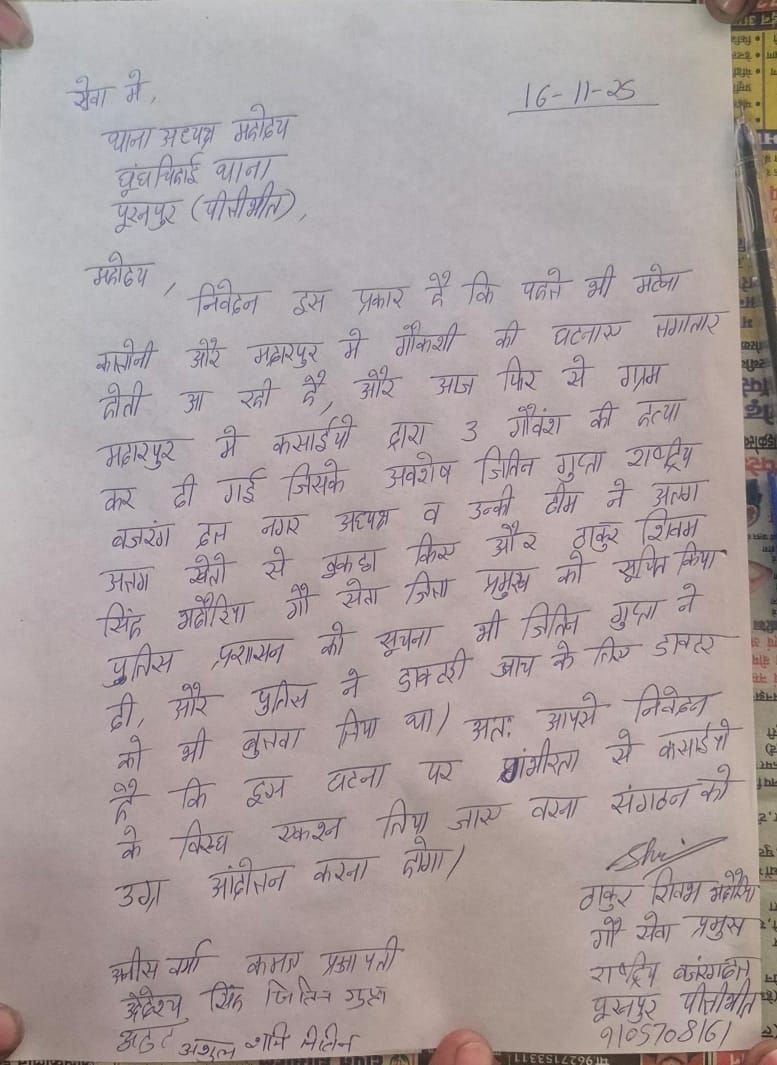 16-11-25
सेवा मे,
थाना अध्यक्ष महोदय
घूंघचिहाई थाना
पूरनपुर (पीलीभीत),
महोदय,
निवेदन इस प्रकार है कि पहले भी मटेना
कालोनी और महारपुर मे गौकशी की घटनाए लगातार
होती आ रही है, और आज फिर से ग्राम
महारपुर मे कसाईयो द्वारा 3 गौवंश की हत्या
कर दी गई जिसके अवशेष जितिन गुप्ता राष्ट्रिय
बजरंग दल नगर अध्यक्ष व उन्की टीम ने अलग
अलग खेतो से इकठ्ठा किए और ठाकुर शिवम
सिंह भदौरिया गौ सेवा जिला प्रमुख को सूचित किया
पुलिस प्रशासन को सूचना भी जितिन गुप्ता ने
दी, और पुलिस ने डाक्टरी जाच के लिए डाक्टर
को भी बुलवा लिया था। अतः आपसे निवेदन
है कि इस घटना पर गांभीरता से कसाईयो
के विरुध एक्शन लिया जाए वरना संगठन को
उग्र आंदोलन करना होगा।
ठाकुर शिवम भदौरिया
गौ सेवा प्रमुख
राष्ट्रिय बजरंगदल
पूरनपुर पीलीभीत
9105708161
वर्मा कमल प्रजापती
सिंह जितिन गुप्ता
अंशुल शनि नितिन
9627153311